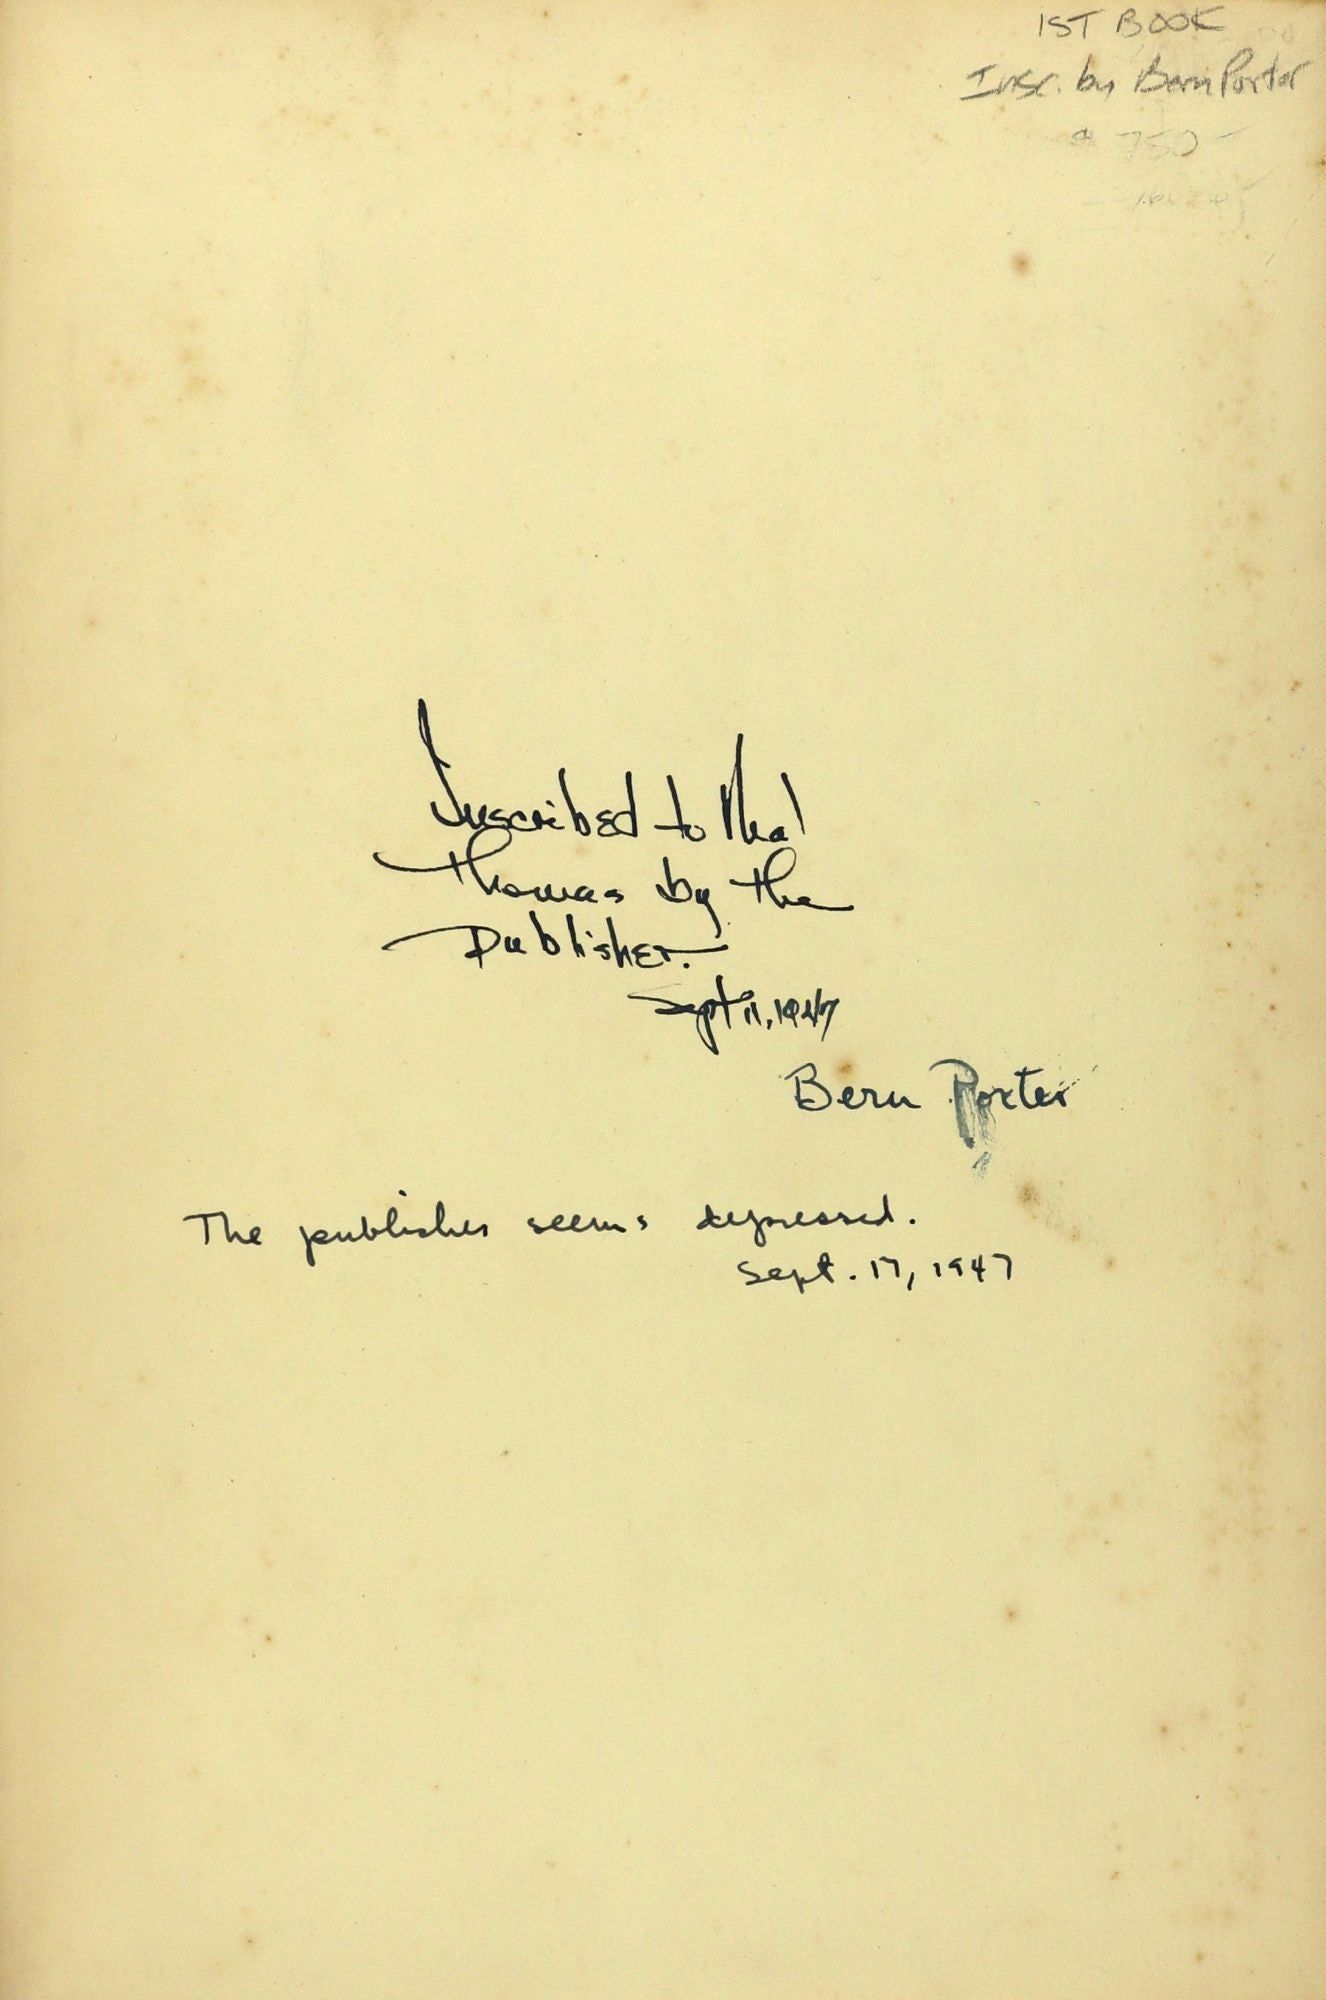 1ST BOOK
Inscr. by Bern Porter
$ 750-
Inscribed to Neal
Thomas by the
Publisher.
Sept 11, 1947
Bern Porter
The publisher seems depressed.
Sept. 17, 1947